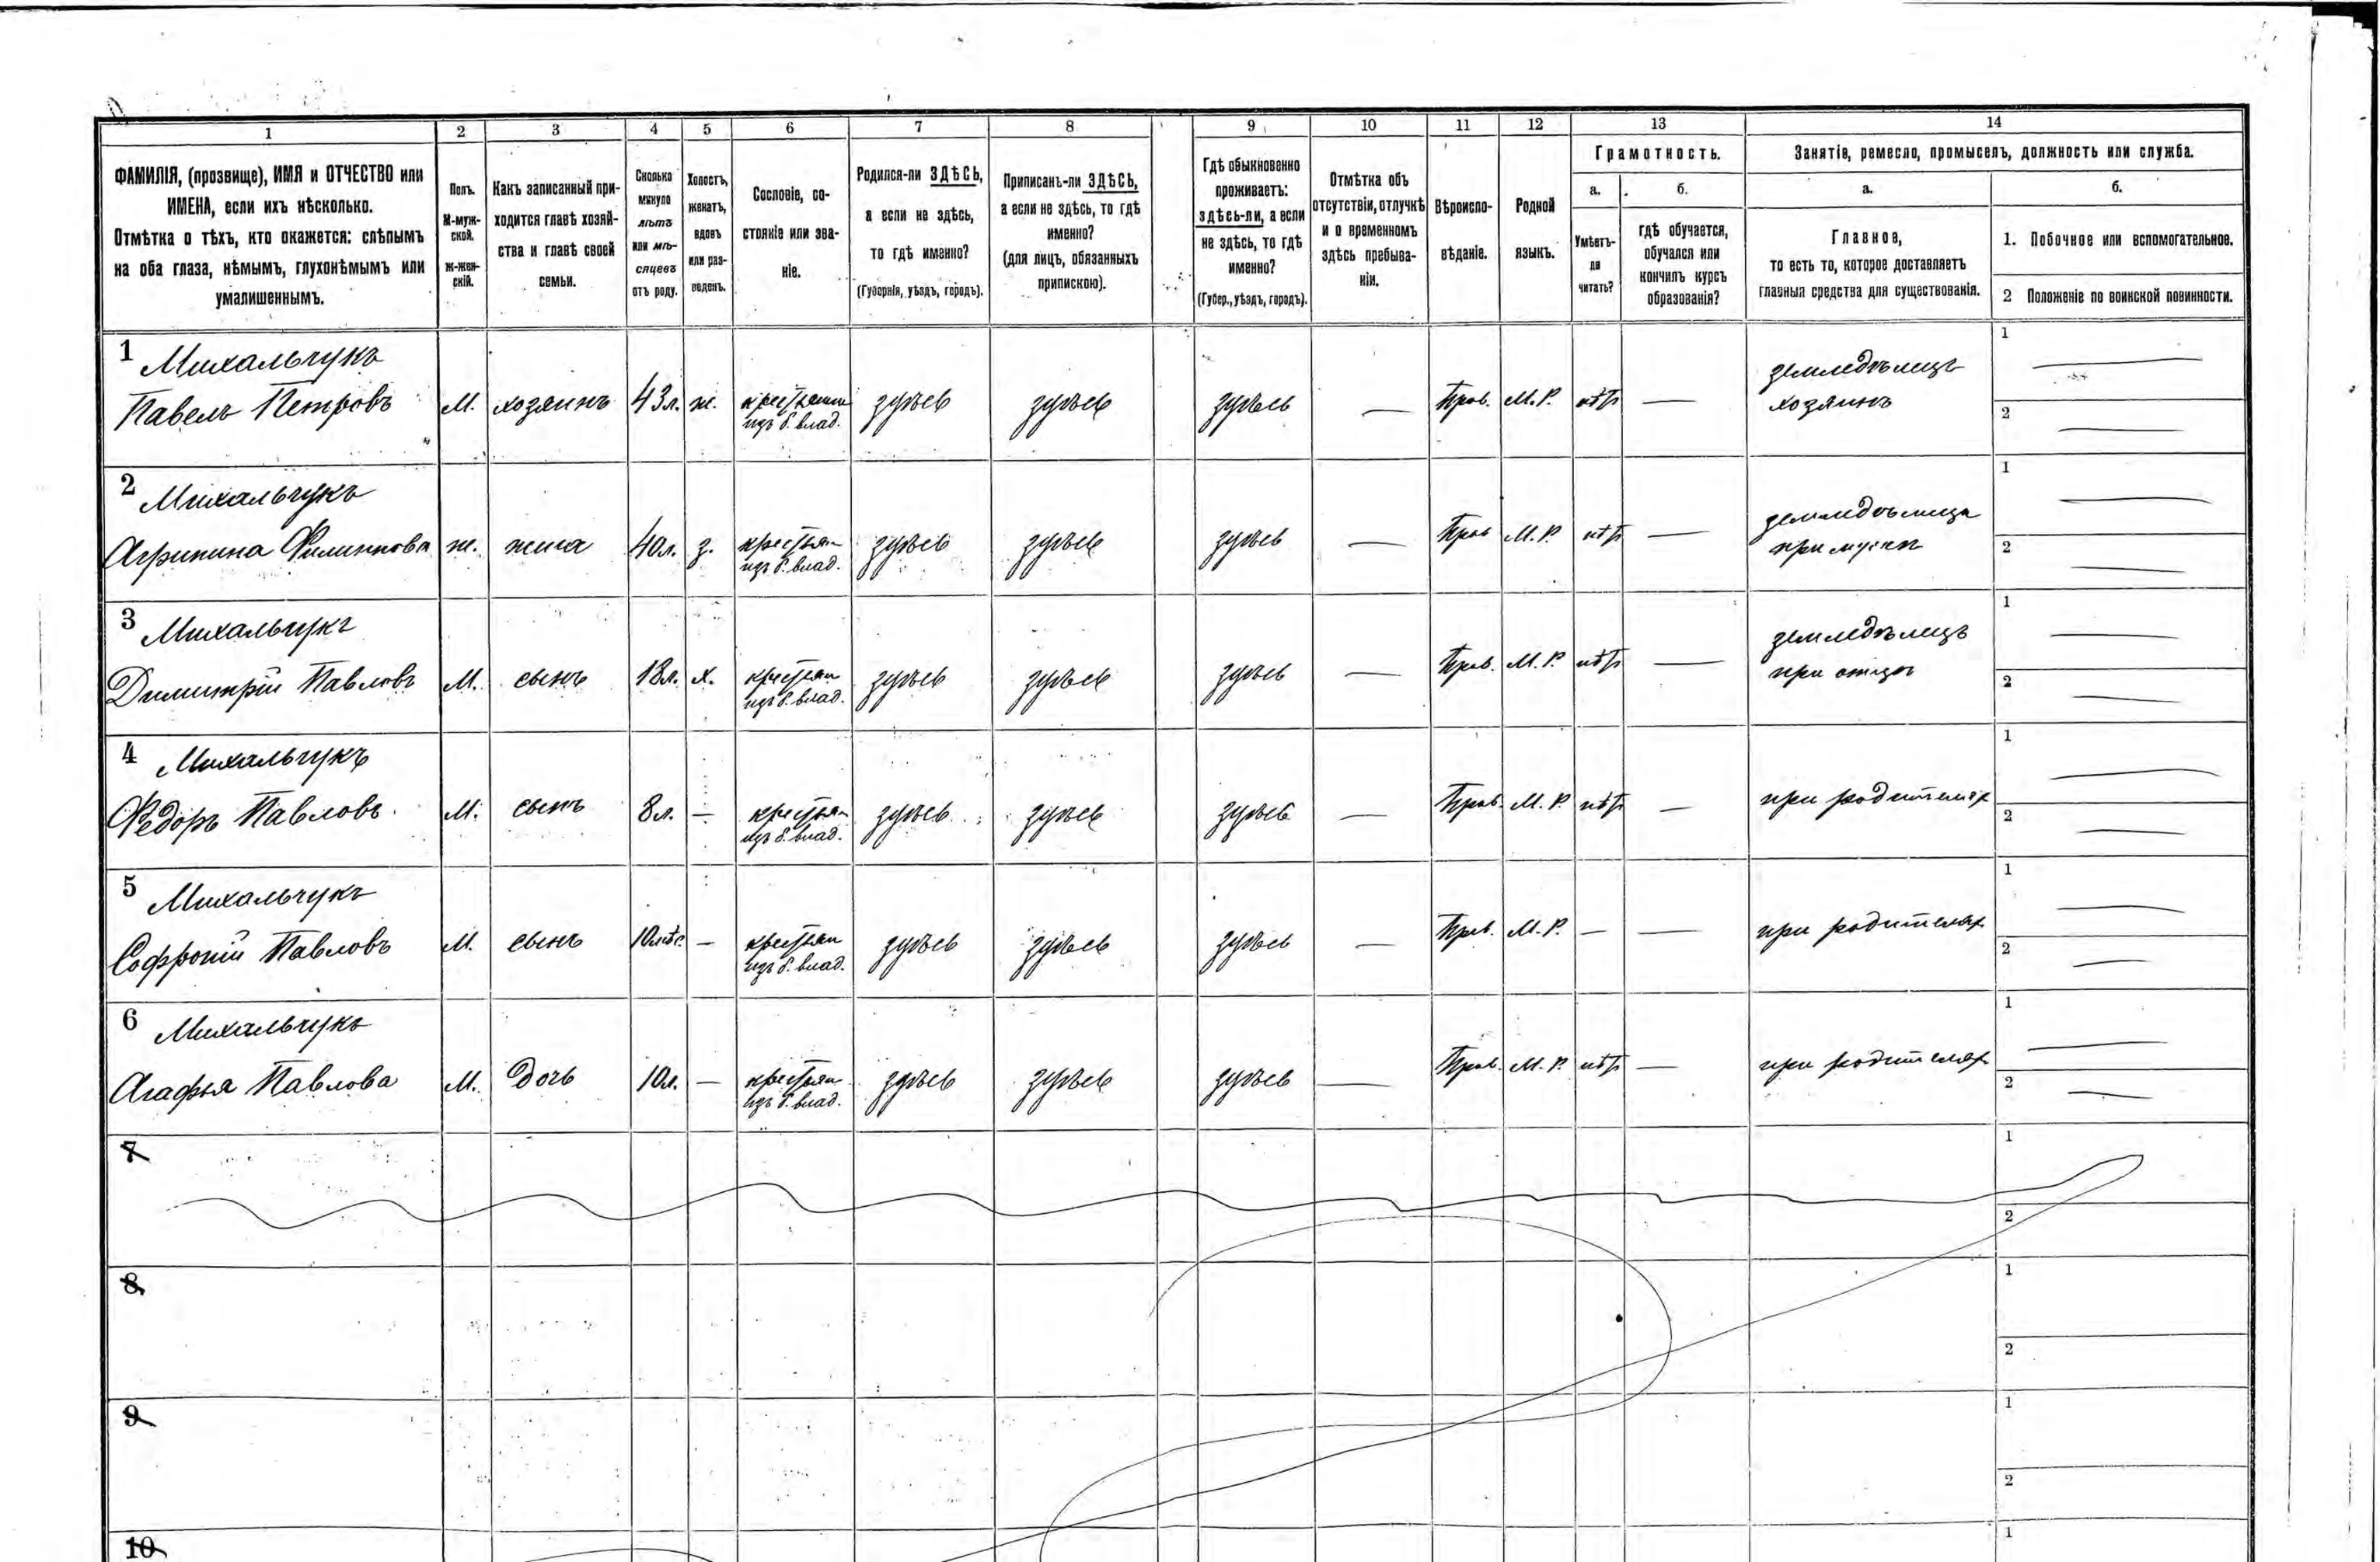 1 2 3 4 5 6 7 8 9 10 11 12 13 14
ФАМИЛІЯ, (прозвище), ИМЯ и ОТЧЕСТВО или
ИМЕНА, если ихъ нѣсколько.
Отмѣтка о тѣхъ, кто окажется: слѣпымъ
на оба глаза, нѣмымъ, глухонѣмымъ или
умалишеннымъ.
Полъ.
М-муж-
ской.
Ж-жен-
скій.
Какъ записанный при-
ходится главѣ хозяй-
ства и главѣ своей
семьи.
Сколько
минуло
лѣтъ
или мѣ-
сяцевъ
отъ роду.
Холостъ,
женатъ,
вдовъ
или раз-
веденъ.
Сословіе, со-
стояніе или зва-
ніе.
Родился-ли ЗДѢСЬ,
а если не здѣсь,
то гдѣ именно?
(Губернія, уѣздъ, городъ).
Приписанъ-ли ЗДѢСЬ,
а если не здѣсь, то гдѣ
именно?
(для лицъ, обязанныхъ
припискою).
Гдѣ обыкновенно
проживаетъ:
здѣсь-ли, а если
не здѣсь, то гдѣ
именно?
(Губер., уѣздъ, городъ).
Отмѣтка объ
отсутствіи, отлучкѣ
и о временномъ
здѣсь пребыва-
ніи.
Вѣроиспо-
вѣданіе.
Родной
языкъ.
Грамотность.
а.
б.
Умѣетъ-
ли
читать?
гдѣ обучается,
обучался или
кончилъ курсъ
образованія?
Занятіе, ремесло, промыселъ, должность или служба.
а.
б.
Главное,
то есть то, которое доставляетъ
главныя средства для существованія.
1. Побочное или вспомогательное.
2 Положеніе по воинской повинности.
1 Михальчукъ
Павелъ Петровъ М. хозяинъ 43л. ж. крестьянин здѣсь здѣсь здѣсь — Прав. М.Р. нѣт —
изъ б. влад.
земледѣлецъ
хозяинъ
1 —
2 —
2 Михальчукъ
Агрипина Филиппова ж. жена 40л. з. крестьян здѣсь здѣсь здѣсь — Прав М.Р. нѣт —
изъ б. влад.
земледѣлица
при мужѣ
1 —
2 —
3 Михальчукъ
Димитрій Павловъ М. сынъ 18л. х. крестьян здѣсь здѣсь здѣсь — Прав. М.Р. нѣт —
изъ б. влад.
земледѣлецъ
при отцѣ
1 —
2 —
4 Михальчукъ
Федоръ Павловъ М. сынъ 8л. — крестьян здѣсь здѣсь здѣсь — Прав. М.Р. нѣт —
изъ б. влад.
при родителях
1 —
2 —
5 Михальчукъ
Софроній Павловъ М. сынъ 10мѣс. — крестьян здѣсь здѣсь здѣсь — Прав. М.Р. — —
изъ б. влад.
при родителях
1 —
2 —
6 Михальчукъ
Агафья Павлова М. дочь 10л. — крестьян здѣсь здѣсь здѣсь — Прав. М.Р. нѣт —
изъ б. влад.
при родителях
1 —
2 —
7
1
2
8
1
2
9
1
2
10
1